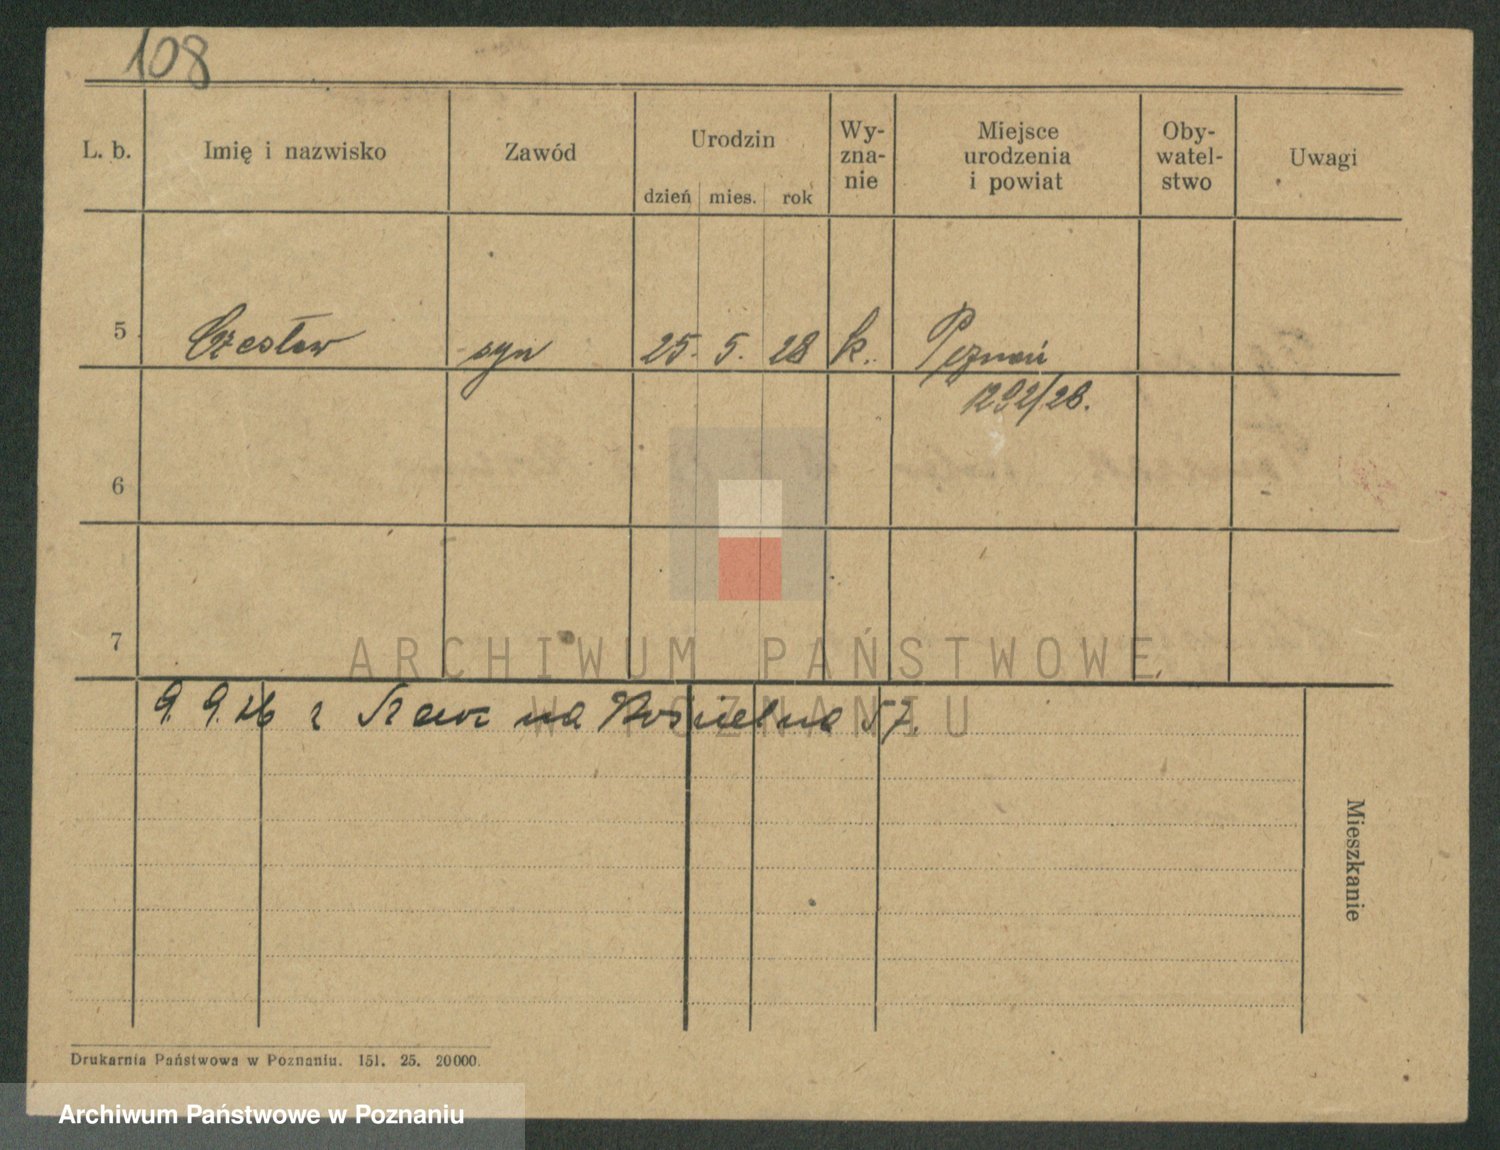 108
L. b. Imię i nazwisko Zawód Urodzin Wy-zna-nie Miejsce urodzenia i powiat Oby-watel-stwo Uwagi
dzień mies. rok
5 Czesław syn 25. 5. 28 k. Poznań
1292/28.
6
7
ARCHIWUM PAŃSTWOWE
W POZNANIU
9. 9. 26 z na Kościelna 57.
Mieszkanie
Drukarnia Państwowa w Poznaniu. 151. 25. 20000.
Archiwum Państwowe w Poznaniu